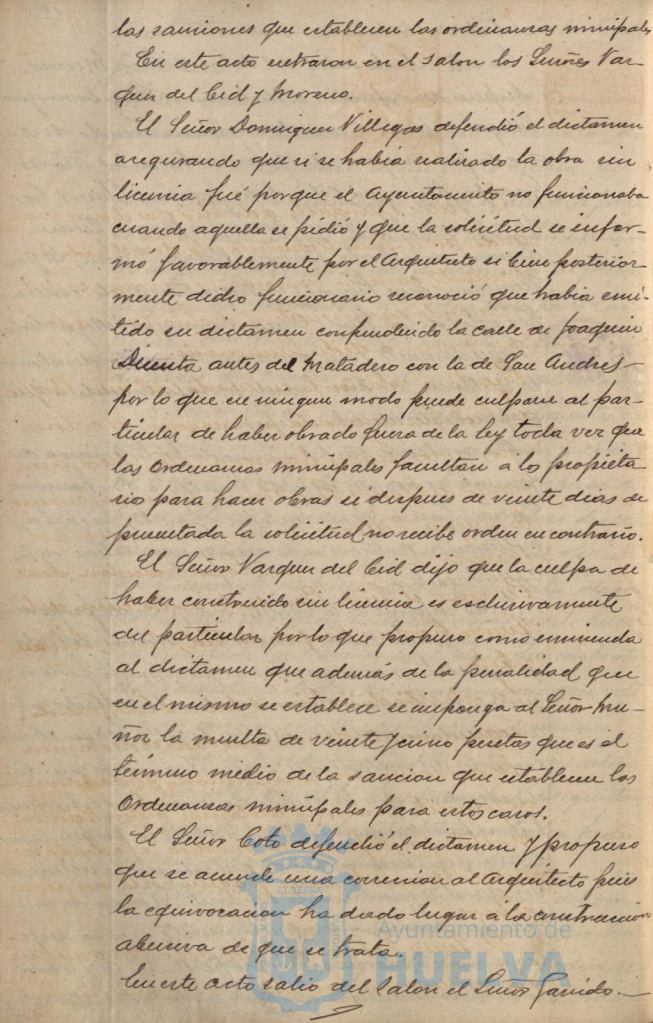 las sanciones que establecen las ordenanzas municipales
En este acto entraron en el salon los Señores Vaz-
quez del Cid y Moreno.
El Señor Dominguez Villegas defendió el dictamen
asegurando que si se habia realizado la obra sin
licencia fué porque el Ayuntamiento no funcionaba
cuando aquella se pidió y que la solicitud se infor-
mó favorablemente por el Arquitecto si bien posterior-
mente dicho funcionario reconoció que habia emi-
tido su dictamen confundiendo la calle de Joaquin
Dicenta antes del Matadero con la de San Andres-
por lo que en ningun modo puede culparse al par-
ticular de haber obrado fuera de la ley toda vez que
las Ordenanzas municipales facultan á los propieta-
rio para hacer obras si despues de veinte dias de
presentada la solicitud no recibe orden en contrario.
El Señor Vazquez del Cid dijo que la culpa de
haber construido sin licencia es esclusivamente
del particular por lo que propuso como enmienda
al dictamen que además de la penalidad que
en el mismo se establece se imponga al Señor Mu-
ñoz la multa de veinte y cinco pesetas que es el
término medio de la sancion que establecen las
Ordenanzas municipales para estos casos.
El Señor Coto defendió el dictamen y propuso
que se acuerde una correccion al Arquitecto pues
la equivocacion ha dado lugar á la construccion
abusiva de que se trata.
En este acto salió del Salon el Señor Garrido.-
Ayuntamiento de
HUELVA